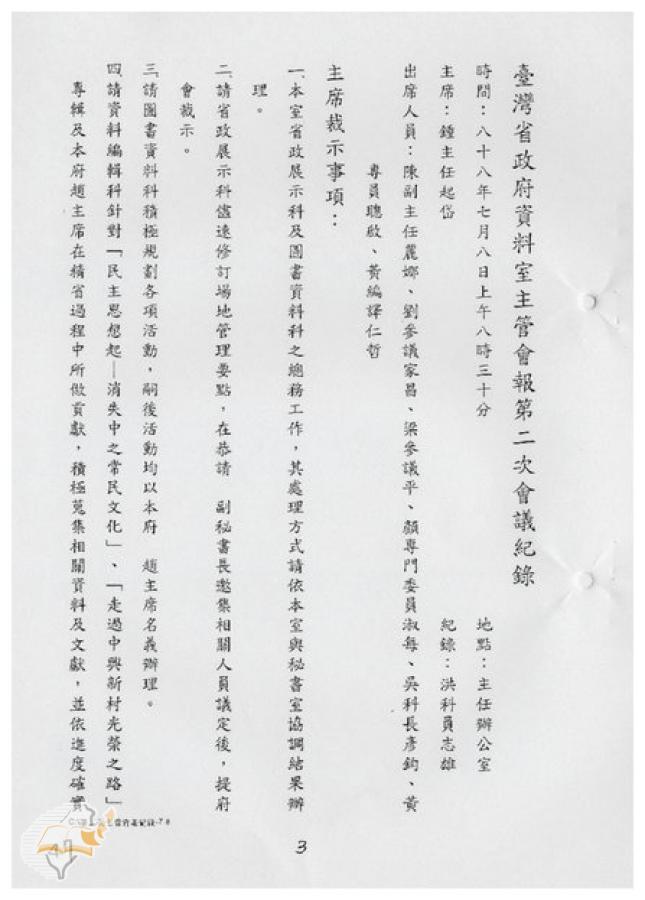 臺灣省政府資料室主管會報第二次會議紀錄
時間：八十八年七月八日上午八時三十分 地點：主任辦公室
主席：鍾主任起岱 紀錄：洪科員志雄
出席人員：陳副主任麗娜、劉參議家昌、梁參議平、顏專門委員淑每、吳科長彥鈞、黃
專員聰啟、黃編譯仁哲
主席裁示事項：
一、本室省政展示科及圖書資料科之總務工作，其處理方式請依本室與秘書室協調結果辦
理。
二、請省政展示科儘速修訂場地管理要點，在恭請 副秘書長邀集相關人員議定後，提府
會裁示。
三、請圖書資料科積極規劃各項活動，嗣後活動均以本府 趙主席名義辦理。
四、請資料編輯科針對「民主思想起—消失中之常民文化」、「走過中興新村光榮之路」
專輯及本府趙主席在精省過程中所做貢獻，積極蒐集相關資料及文獻，並依進度確實
3